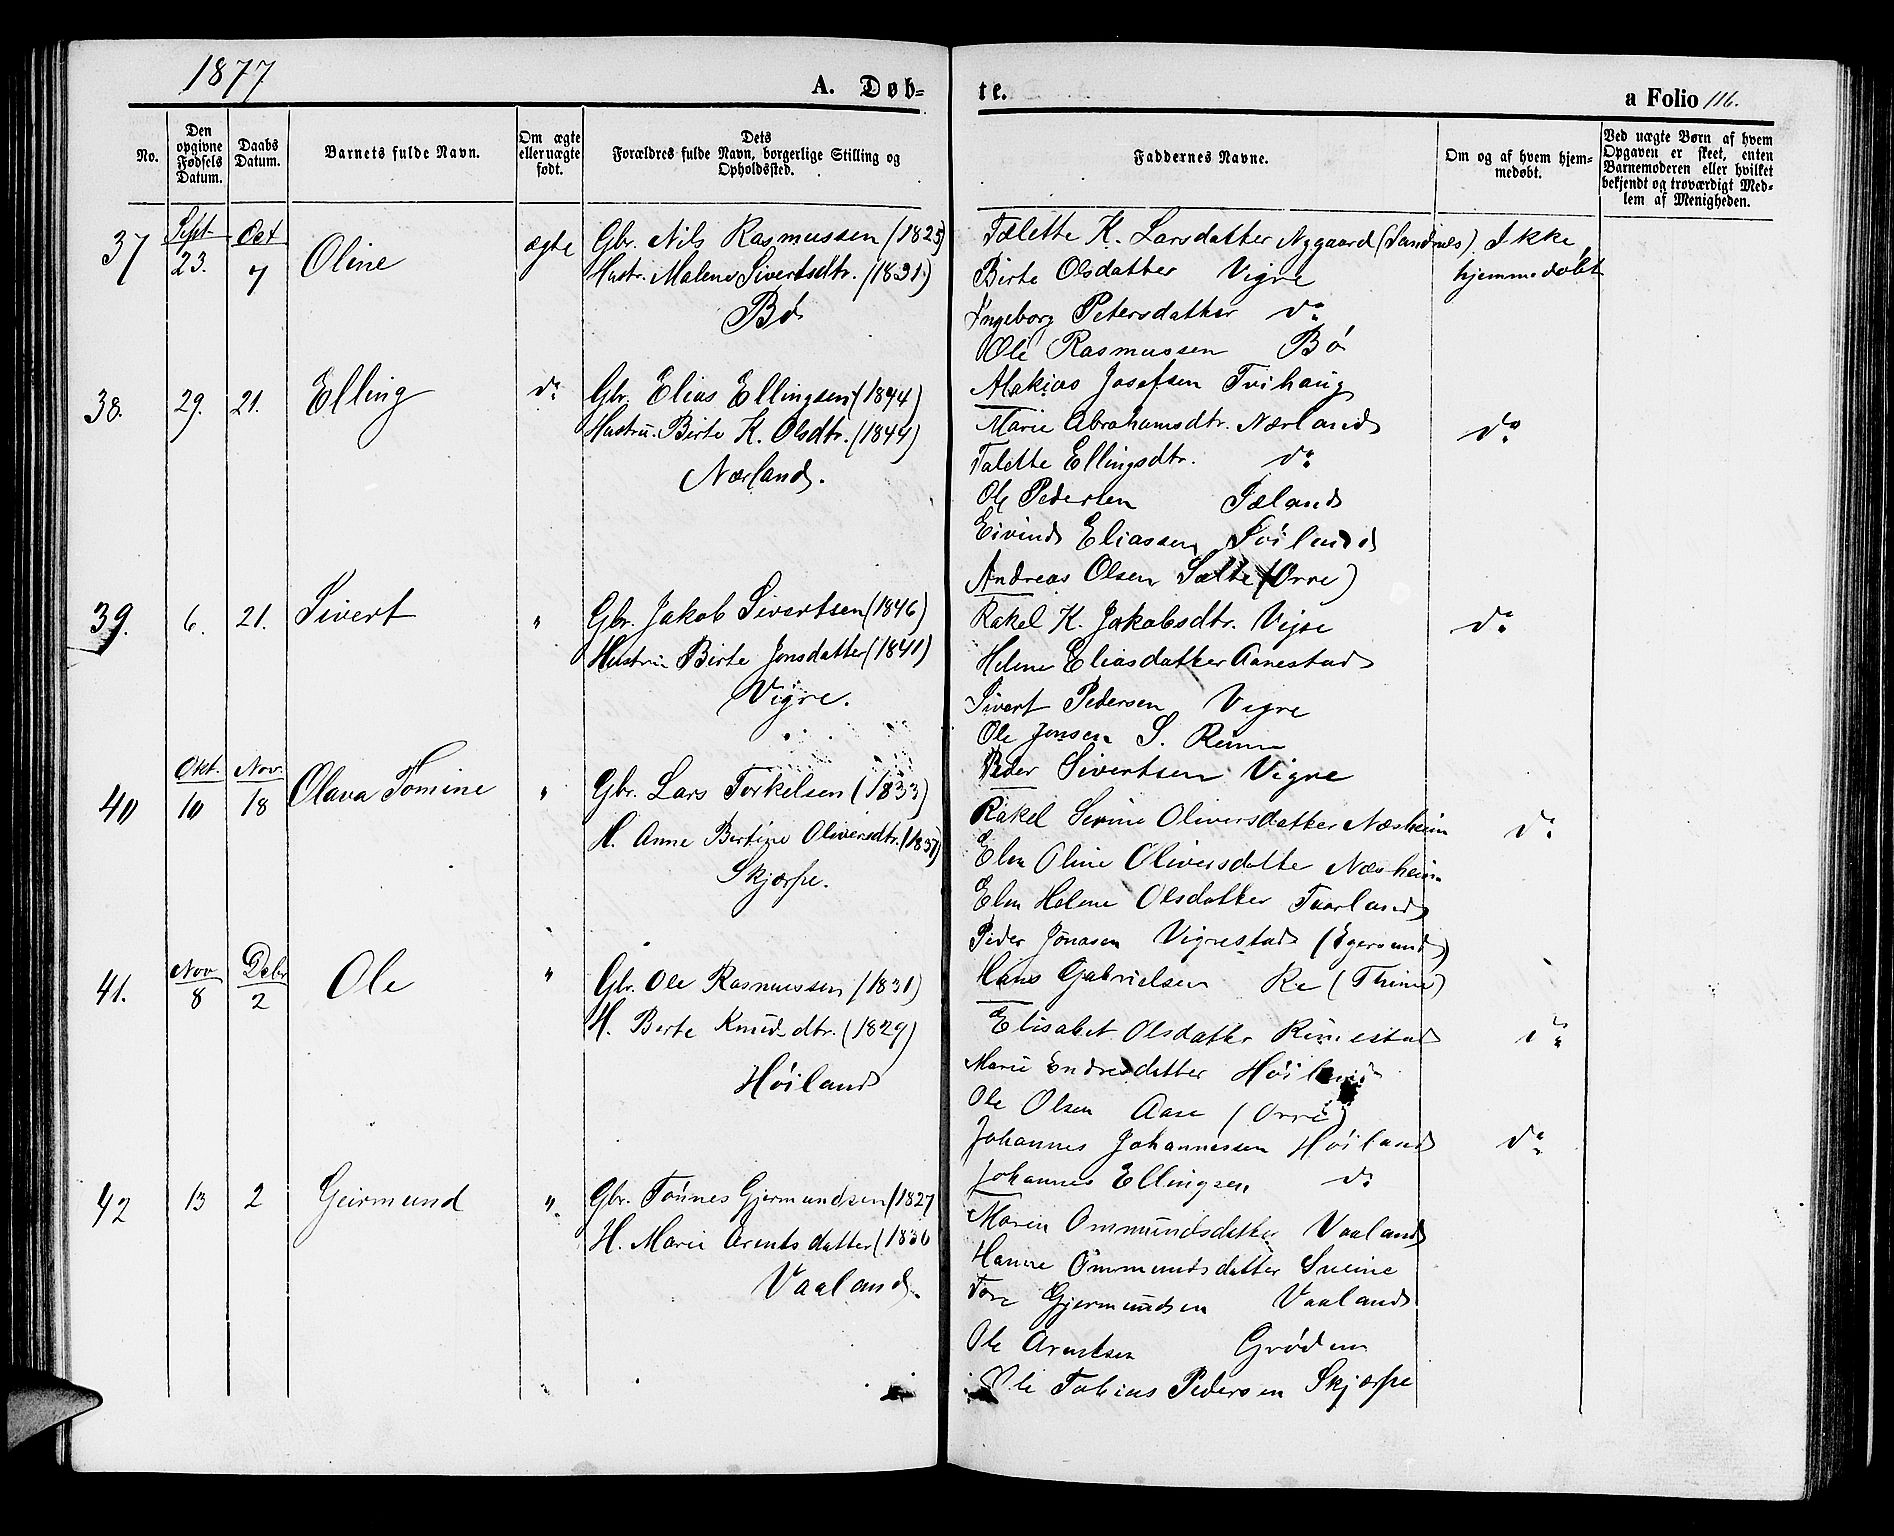 1877
A. Døb-
te.
a Folio 116.
No.
Den opgivne Fødsels Datum.
Daabs Datum.
Barnets fulde Navn.
Om ægte eller uægte født.
Dets Forældres fulde Navn, borgerlige Stilling og Opholdssted.
Faddernes Navne.
Om og af hvem hjem-
medøbt.
Ved uægte Børn af hvem
Opgaven er skeet, enten
Barnemoderen eller hvilket
bekjendt og troværdigt Med-
lem af Menigheden.
37 Sept 23. Oct 7 Oline ægte Gbr. Nils Rasmussen (1825)
Hustr. Malene Sivertsdtr. (1831)
Bø
Tælette K. Larsdatter Nygaard (Sandnes)
Birte Olsdatter Vigre
Ingeborg Petersdatter do
Ole Rasmussen Bø
Malkias Josefsen Tvihaug
Ikke
hjemmedøbt
38. 29. 21. Elling do Gbr. Elias Ellingsen (1844)
Hustru. Birte K. Olsdtr. (1844)
Nærland.
Marie Abrahamsdtr. Nærland
Talette Ellingsdtr. do
Ole Pedersen Tæland
Eivind Eliassen Høiland
Andreas Olsen Salte (Orre)
do
39. 6. 21. Sivert " Gbr. Jakob Sivertsen (1846)
Hustru Birte Jonsdatter (1841)
Vigre.
Rakel K. Jakobsdtr. Vigre
Helene Eliasdatter Aanestad
Sivert Pedersen Vigre
Ole Jonsen S. Reime
Peder Sivertsen Vigre
do
40 Okt. 10 Nov. 18 Olava Tomine " Gbr. Lars Torkelsen (1833)
H. Anne Bertine Oliversdtr. (1837)
Skjærpe.
Rakel Serine Oliversdatter Næsheim
Elen Oline Oliversdatte Næsheim
Elen Helene Olsdatter Taarland
Peder Jonasen Vigrestad (Egersund)
Hans Gabrielsen Re (Thime)
do
41. Nov 8 Debr 2 Ole " Gbr. Ole Rasmussen (1831)
H. Berte Knudsdtr. (1829)
Høiland
Elisabet Olsdatter Rimestad
Marie Endresdatter Høiland
Ole Olsen Aase (Orre)
Johannes Johannessen Høiland
Johannes Ellingsen do
do
42 13 2 Geirmund " Gbr. Tønnes Gjermundsen (1827
H. Marie Arntsdatter (1836
Vaaland.
Maren Ommundsdatter Vaaland
Hanne Ommundsdatter Sueine
Tore Gjermundsen Vaaland
Ole Arntsen Grødem
Ole Tobias Pedersen Skjærpe
do